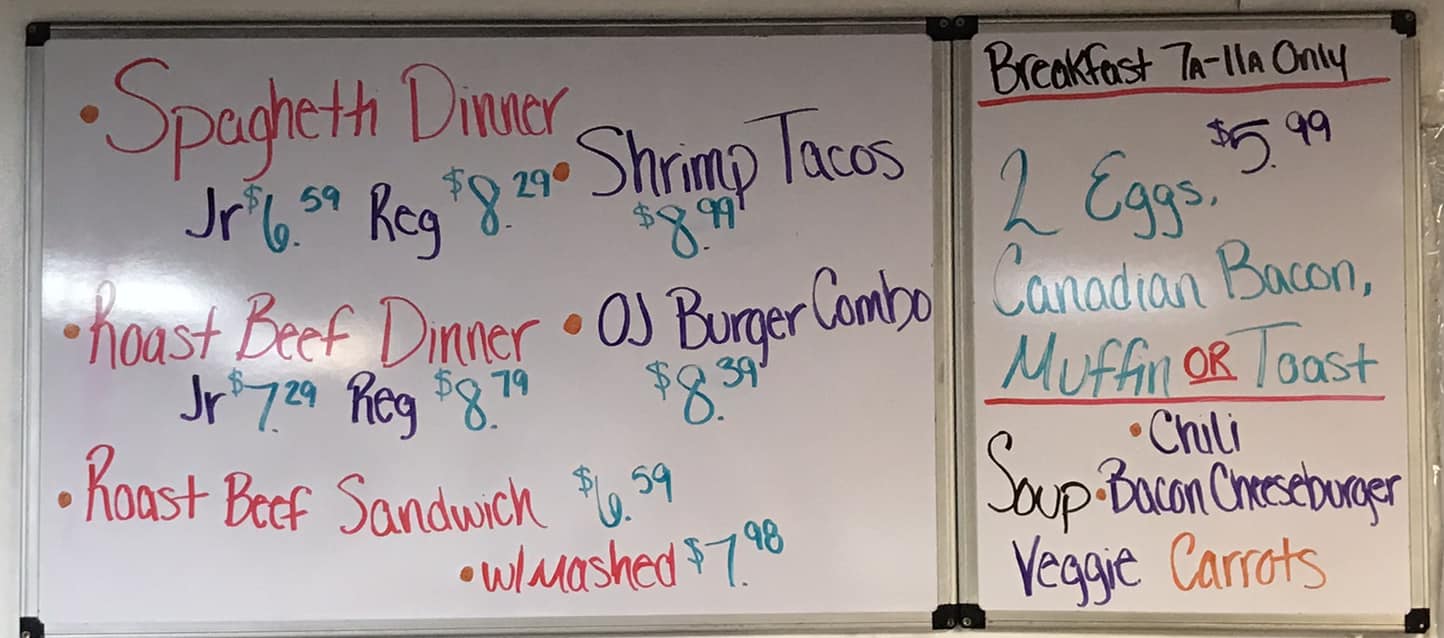 • Spaghetti Dinner
Jr $6.59 Reg $8.29
• Shrimp Tacos
$8.99
• Roast Beef Dinner
Jr $7.29 Reg $8.79
• OJ Burger Combo
$8.39
• Roast Beef Sandwich $6.59
• w/Mashed $7.98
Breakfast 7A-11A Only
$5.99
2 Eggs,
Canadian Bacon,
Muffin OR Toast
• Chili
Soup • Bacon Cheeseburger
Veggie Carrots